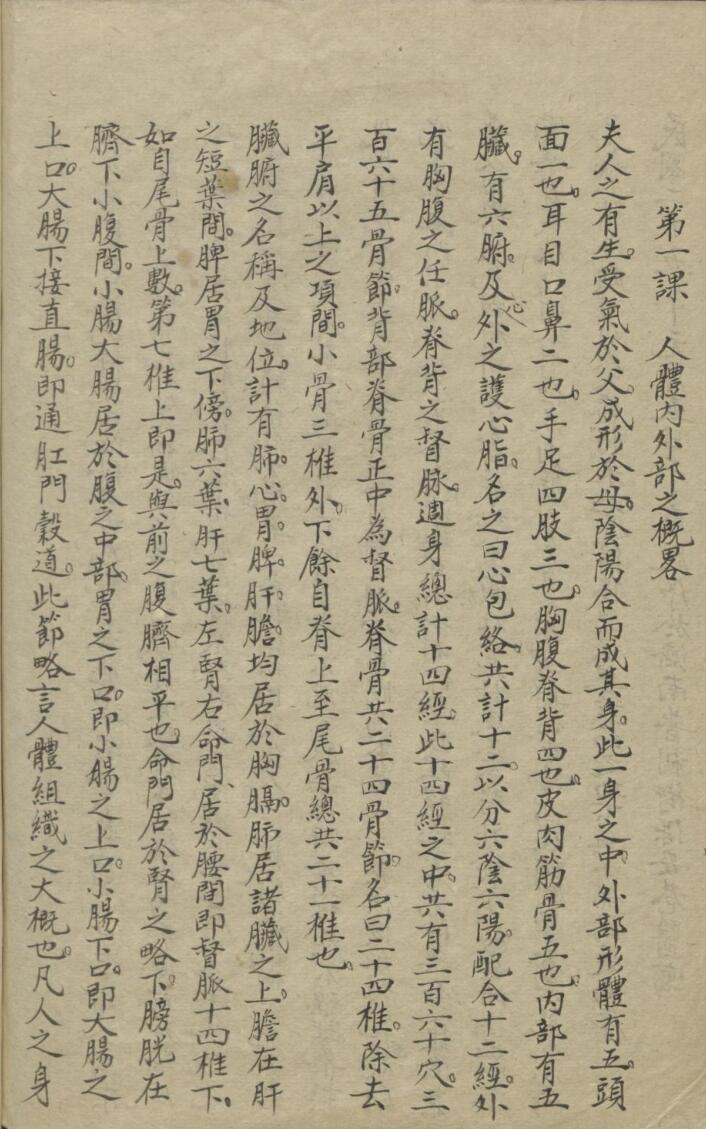 第一課 人體內外部之概畧
夫人之有生。受氣於父。成形於母。陰陽合而成其身。此一身之中。外部形體有五。頭
面一也。耳目口鼻二也。手足四肢三也。胸腹脊背四也。皮肉筋骨五也。內部有五
臟。有六腑。及心外之護心脂。名之曰心包絡。共計十二。以分六陰六陽。配合十二經。外
有胸腹之任脈。脊背之督脉。週身總計十四經。此十四經之中。共有三百六十穴。三
百六十五骨節。背部脊骨正中為督脈。脊骨共二十四骨節。名曰二十四椎。除去
平肩以上之項間。小骨三椎外。下餘自脊上至尾骨總共二十一椎也。
臟腑之名稱及地位。計有肺。心。胃。脾。肝。膽。均居於胸膈。肺居諸臟之上。膽在肝
之短葉間。脾居胃之下傍。肺六葉、肝七葉。左腎右命門、居於腰間即督脈十四椎下。
如自尾骨上數。第七椎上即是。與前之腹臍相平也。命門居於腎之略下。膀胱在
臍下小腹間。小腸大腸居於腹之中部。胃之下口。即小腸之上口。小腸下口。即大腸之
上口。大腸下接直腸。即通肛門穀道。此節略言人體組織之大概也。凡人之身